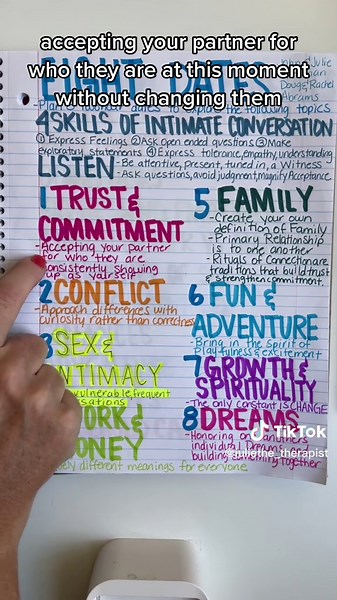 accepting your partner for
who they are at this moment
without changing them
EIGHT DATES
John & Julie
Doug & Rachel
Abrams
to explore the following topics
4 SKILLS OF INTIMATE CONVERSATION
① Express Feelings ② Ask open ended questions ③ Make
exploratory statements ④ Express tolerance, empathy, understanding
LISTEN - Be attentive, present, tuned in, a Witness
- Ask questions, avoid judgment, magnify Acceptance
1 TRUST &
COMMITMENT
- Accepting your partner
for who they are
consistently showing
up as yourself
2 CONFLICT
- Approach differences with
curiosity rather than correctness
3 SEX &
INTIMACY
vulnerable, frequent
conversations
WORK &
MONEY
different meanings for everyone
5 FAMILY
- Create your own
definition of Family
- Primary Relationship
is to one another
- Rituals of Connection are
traditions that build trust
& strengthen commitment.
6 FUN &
ADVENTURE
- Bring in the spirit of
playfulness & excitement
7 GROWTH &
SPIRITUALITY
- The only constant is CHANGE
8 DREAMS
- Honoring one anothers
individual Dreams
building something together
TikTok
@juliethe_therapist